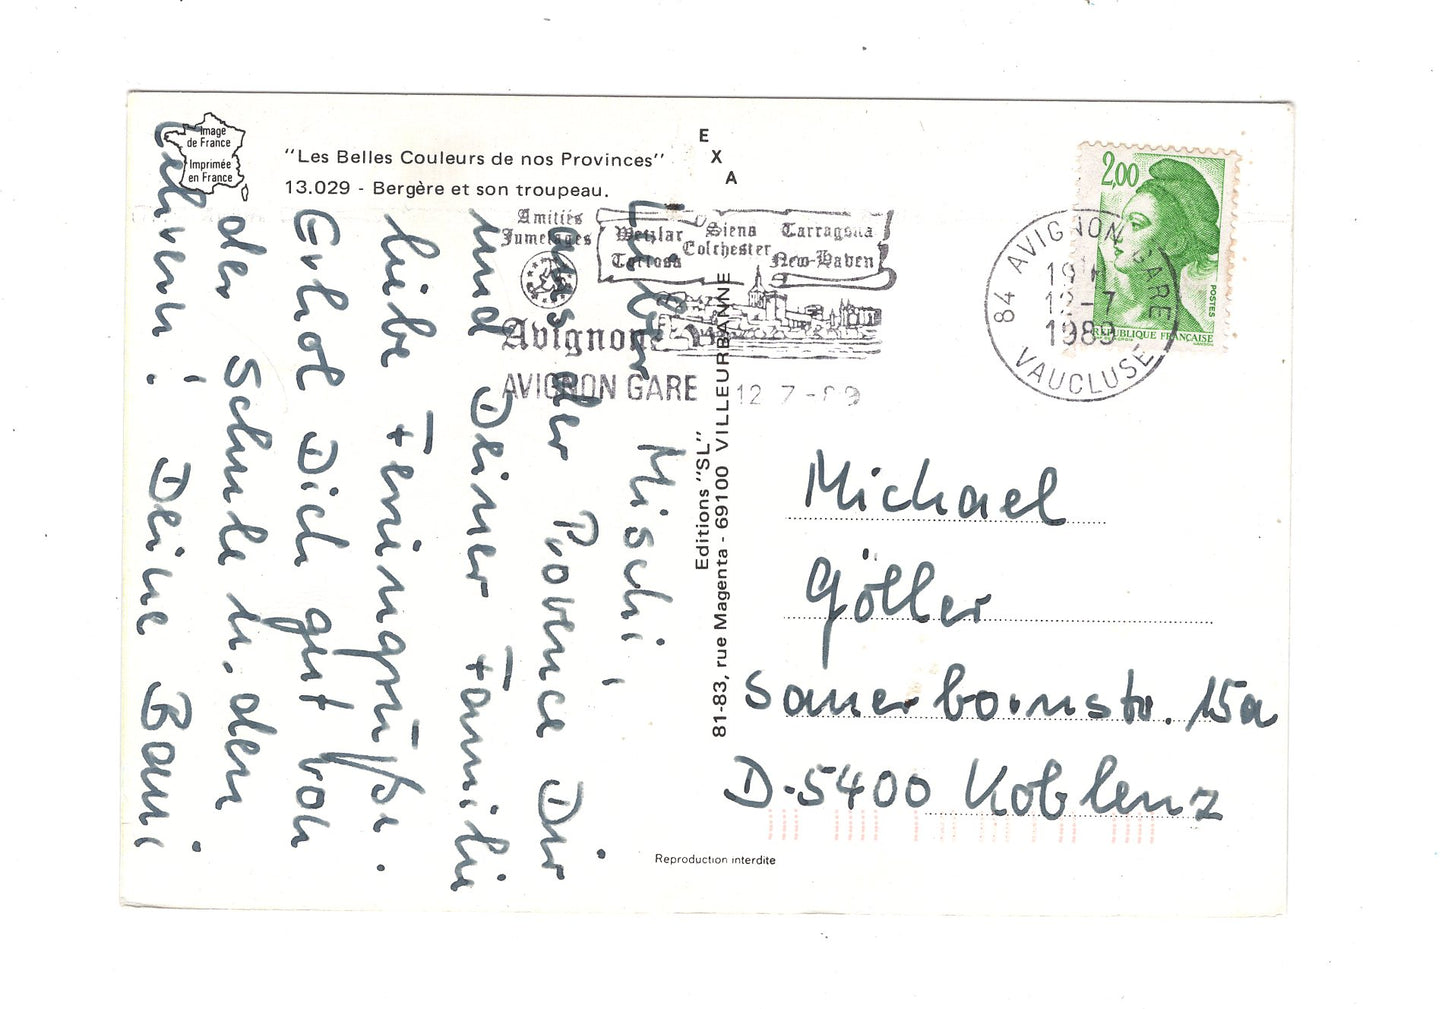 Image
de France
Imprimée
en France
"Les Belles Couleurs de nos Provinces"
13.029 - Bergère et son troupeau.
E
X
A
Amitiés
Jumelages
Wetzlar
Siena
Tarragona
Colchester
Tortosa
New-Haven
Avignon
AVIGNON GARE 12 7 - 89
2,00
POSTES
RÉPUBLIQUE FRANÇAISE
84 AVIGNON GARE
12-7
VAUCLUSE
Lieber Mischi,
aus der Provence Dir
und Deiner Familie
liebe Feriengrüße.
Erhol Dich gut von
der Schule u. den
Lehrern! Deine
Editions "SL"
81-83, rue Magenta - 69100 VILLEURBANNE
Michael
Göller
Sauerbornstr. 15a
D-5400 Koblenz
Reproduction interdite